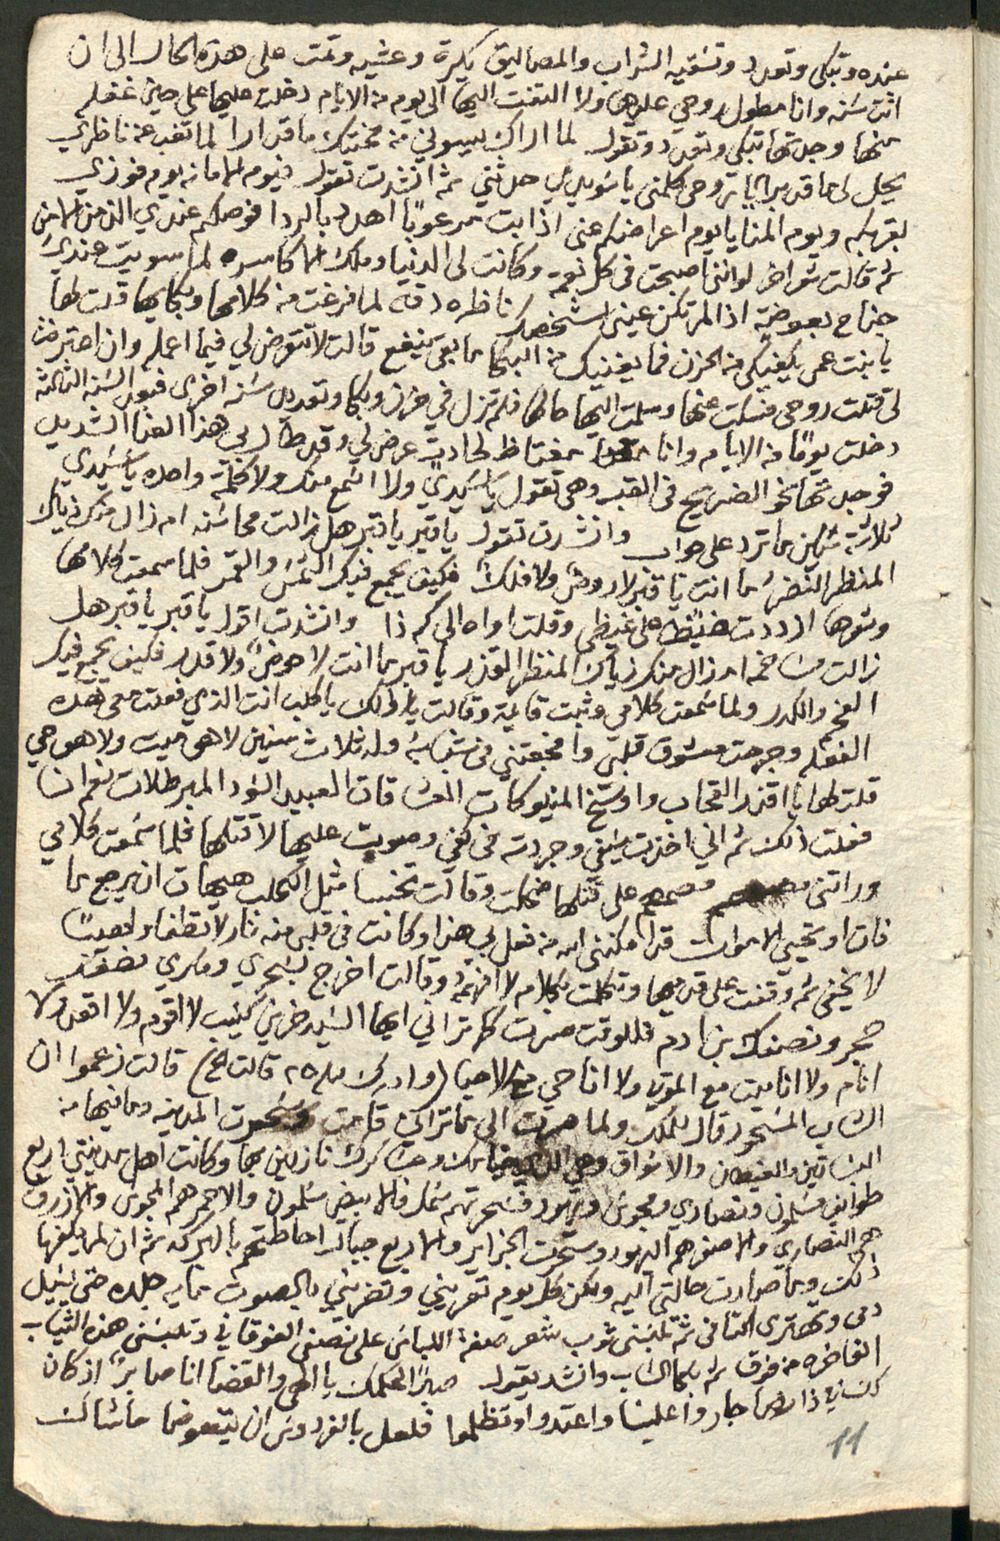 عنده وتبكي وتعدد وتسقيه الشراب والمصاليق بكرة وعشيه وتمت على هذه الحال الى ان
اتت سنه وانا مطول روحي عليها ولا التفت اليها الى يوم من الايام دخلت عليها على حين غفله
منها وجدتها تبكي وتعدد وتقول لما اراك يسوني من محنتك ما قد ارا لما تغب عن ناظري
يحل لي ما قد يرا يا روحي كلمني يا سويدي حدثني ثم انشدت تقول فيوم الامانه يوم فوزي
بقربكم ويوم المنايا يوم اعراضكم عني اذا بت مرعوبًا اهدد بالردا فوصلكم عندي الذ من الامن
ثم قالت شعر اخر لو انني اصبحت في كل نعمه وكانت لي الدنيا وملك الاكاسره لما سويت عندي
جناح بعوضه اذا لم تكن عيني لشخصك ناظره قال لما فرغت من كلامها وبكايها قلت لها
يا بنت عمي يكفيكي من الحزن فما يفيدك من البكا ما بقى ينفع قالت لا تتعرض لي فيما اعمله وان اعترضت
لي قتلت روحي فسكت عنها وسلمت اليها حالها فلم تزل في حزن وبكا وتعديد سنه اخرى فبعد السنه الثالثه
دخلت يومًا من الايام وانا مغتاظ لحادث عرض لي وقد طال بي هذا العنا الشديد
فوجدتها نحو الضريح في القبه وهي تقول يا سيدي ولا اسمع منك ولا كلمة واحده يا سيدي
ثلاثة سنين ما ترد علي جواب وانشدت تقول يا قبر يا قبر هل زالت محاسنه ام زال منك ذياك
المنظر النضر ما انت يا قبر لا روض ولا فلك فكيف يجمع فيك الشمس والقمر فلما سمعت كلامها
وشعرها ازددت غيظا على غيظي وقلت اواه الى كم ذا وانشدت اقول يا قبر يا قبر هل
زالت مساخمه ام زال منك ذياك المنظر القذر يا قبر ما انت لا حوض ولا قدر فكيف يجمع فيك
الفحم والكدر ولما سمعت كلامي وثبت قايمة وقالت يا ذلك يا كلب انت الذي فعلت معي هذه
الفعله وجرحت معشوق قلبي وافجعتني في شبابه وله ثلاث سنين لا هو ميت ولا هو حي
قلت لها يا اقذر القحاب واوسخ المنيوكات العشاقات العبيد السود المبرطلات نعم انا
فعلت ذلك ثم اني اخذت سيفي وجردته في كفي وصوبت عليها لاقتلها فلما سمعت كلامي
وراتني مصمم على قتلها ضحكت وقالت تخسا مثل الكلب هيهات ان يرجع ما
فات او تحيي الاموات قد امكنني الله من فعل بي هذا وكانت في قلبي منه نار لا تطفا ولهيبًا
لا يخفى ثم وقفت على قدميها وتكلمت بكلام لا افهمه وقالت اخرج بسحري ومكري نصفك
حجر ونصفك بنا ادم فللوقت صرت كما تراني ايها السيد حزين كئيب لا اقوم ولا اقعد ولا
انام ولا انا ميت مع الموتى ولا انا حي مع الاحيا (وادرك ليله ٢٥ قالت خ) قالت زعموا ان
الشاب المسحور قال للملك ولما صرت الى ما تراني قامت وسحرت المدينه وما فيها من
البساتين والغيطان والاسواق وهي الذي خيامك وعسكرك نازلين بها وكانت اهل مدينتي اربع
طوايف مسلمون ونصاري ومجوس ويهود فسحرتهم سمك فالابيض مسلمون والاحمر هم المجوس والازرق
هم النصاري والاصفر هم اليهود وسحرت الجزاير والاربع جبال احاطتهم بالبركه ثم ان لم يكفها
ذلك وما صارت حالتي اليه ولكن كل يوم تعريني وتضربني بالصوت مايه جلده حتى يسيل
دمي ويهتري اكتافي ثم تلبسني ثوب شعر صفة اللباس على نصفي الفوقاني وتلبسني هذه الثياب
الفاخره من فوق ثم بكا الشاب وانشد يقول صبرًا لحكمك يا الهي والقضا انا صابرً اذ كان
لك في ذا الرضا جاروا علينا واعتدوا وتظلموا فلعل بالفردوس ان يتعوضا حاشاك
11